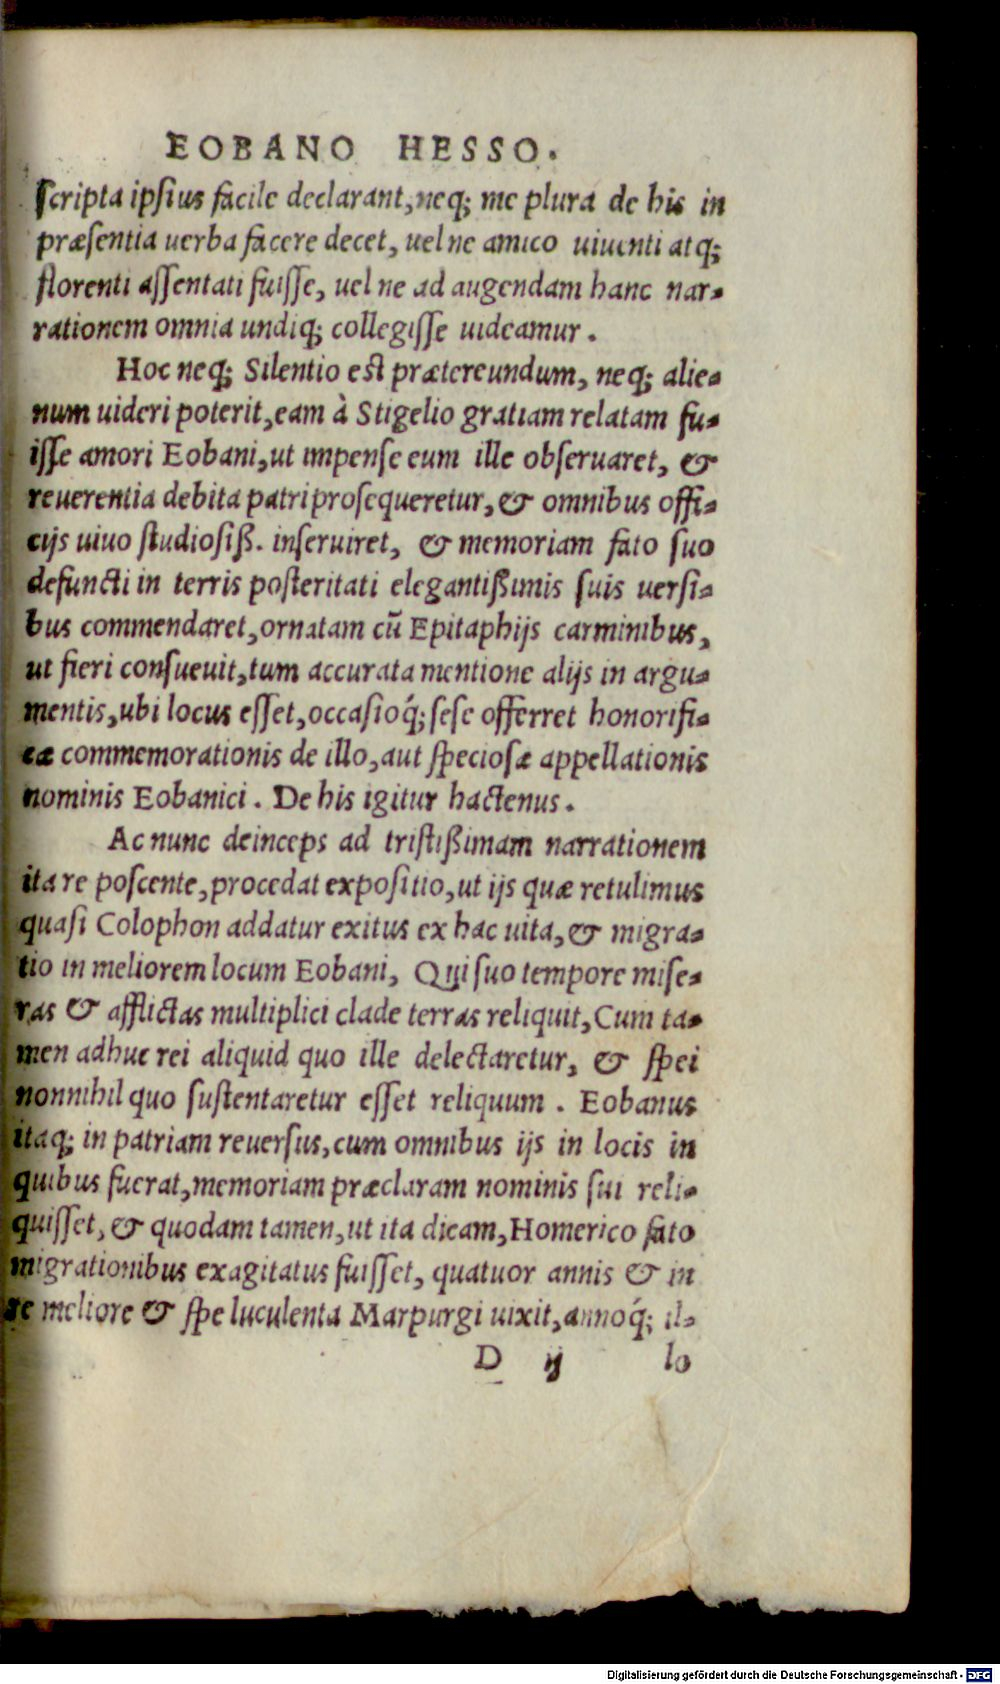 EOBANO HESSO.
scripta ipsius facile declarant, neq; me plura de his in
præsentia uerba facere decet, uel ne amico uiuenti atq;
florenti assentati fuisse, uel ne ad augendam hanc nar-
rationem omnia undiq; collegisse uideamur.
Hoc neq; Silentio est prætereundum, neq; alie-
num uideri poterit, eam à Stigelio gratiam relatam fu-
isse amori Eobani, ut impense eum ille obseruaret, &
reuerentia debita patri prosequeretur, & omnibus offi-
cijs uiuo studiosiß. inseruiret, & memoriam fato suo
defuncti in terris posteritati elegantißimis suis uersi-
bus commendaret, ornatam cũ Epitaphijs carminibus,
ut fieri consueuit, tum accurata mentione alijs in argu-
mentis, ubi locus esset, occasioq́; sese offerret honorifi-
cæ commemorationis de illo, aut speciosæ appellationis
nominis Eobanici. De his igitur hactenus.
Ac nunc deinceps ad tristißimam narrationem
ita re poscente, procedat expositio, ut ijs quæ retulimus
quasi Colophon addatur exitus ex hac uita, & migra-
tio in meliorem locum Eobani, Qui suo tempore mise-
ras & afflictas multiplici clade terras reliquit, Cum ta-
men adhuc rei aliquid quo ille delectaretur, & spei
nonnihil quo sustentaretur esset reliquum. Eobanus
itaq; in patriam reuersus, cum omnibus ijs in locis in
quibus fuerat, memoriam præclaram nominis sui reli-
quisset, & quodam tamen, ut ita dicam, Homerico fato
migrationibus exagitatus fuisset, quatuor annis & in
re meliore & spe luculenta Marpurgi uixit, annoq́; il-
D ij lo
Digitalisierung gefördert durch die Deutsche Forschungsgemeinschaft - DFG